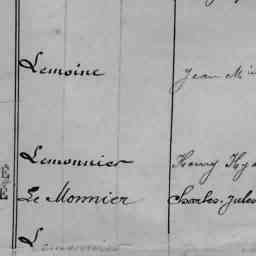 Lemoine Jean M
Lemonnier Henry Hya
Le Monnier Charles-Jules